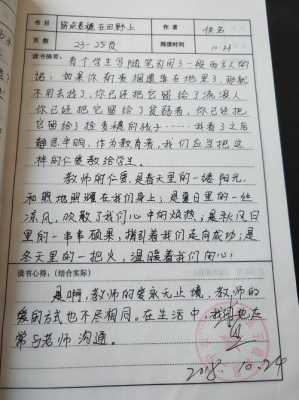 书 目 留点麦穗在田野上 作 者 佚名
页 数 23-25页 阅读时间 10.23
读书摘录:
有个学生写随笔引用了一段西方人的
话:如果你有麦穗遗落在地里了,那就
不用去捡了,你已经把它留给了流浪人
你已经把它留给了贫弱者,你已经把
它留给了捡麦穗的孩子……我看了之后
静思半晌,作为教育者,我们应当把这
样的仁爱教给学生。
教师的仁爱,是春天里的一缕阳光,
和煦地照耀在我们身上;是夏日里的一丝
凉风,吹散了我们心中的烦热;是秋风日
里的一串串硕果,指引着我们走向成功;是
冬天里的一把火,温暖着我们的心!
读书心得:(结合实际)
是啊,教师的爱永无止境,教师的
爱的方式也不尽相同。在生活中,我们
常与老师沟通。
2018.10.24